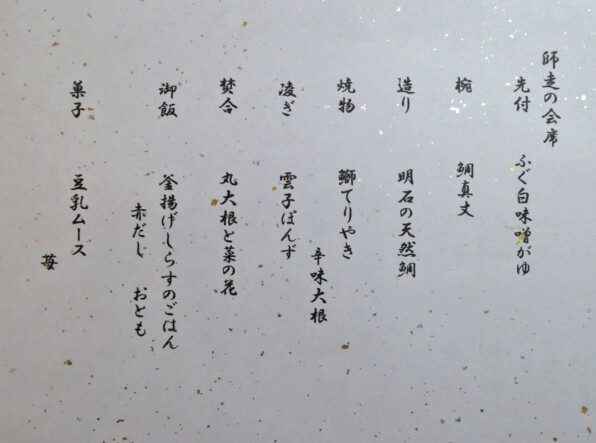 師走の会席
先付　ふぐ白味噌がゆ
椀　鯛真丈
造り　明石の天然鯛
焼物　鰤てりやき
辛味大根
凌ぎ　雲子ぽんず
焚合　丸大根と菜の花
御飯　釜揚げしらすのごはん
赤だし　おとも
菓子　豆乳ムース
苺